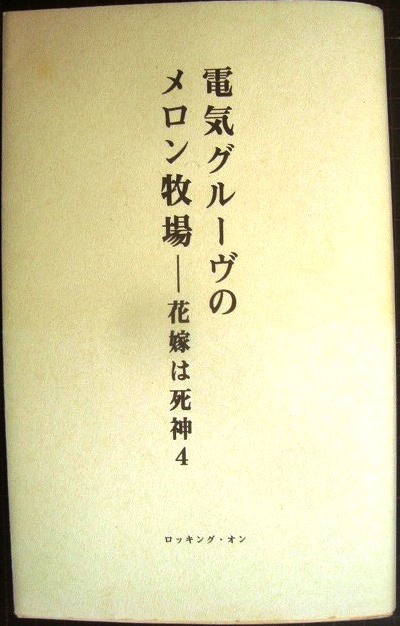 電気グルーヴの
メロン牧場──花嫁は死神4
ロッキング・オン